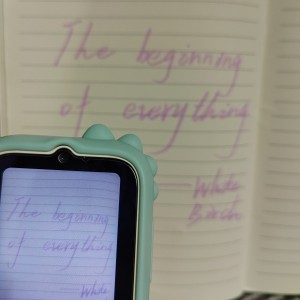 The beginning
of everything
—— White
Birch
The beginning
of everything
White